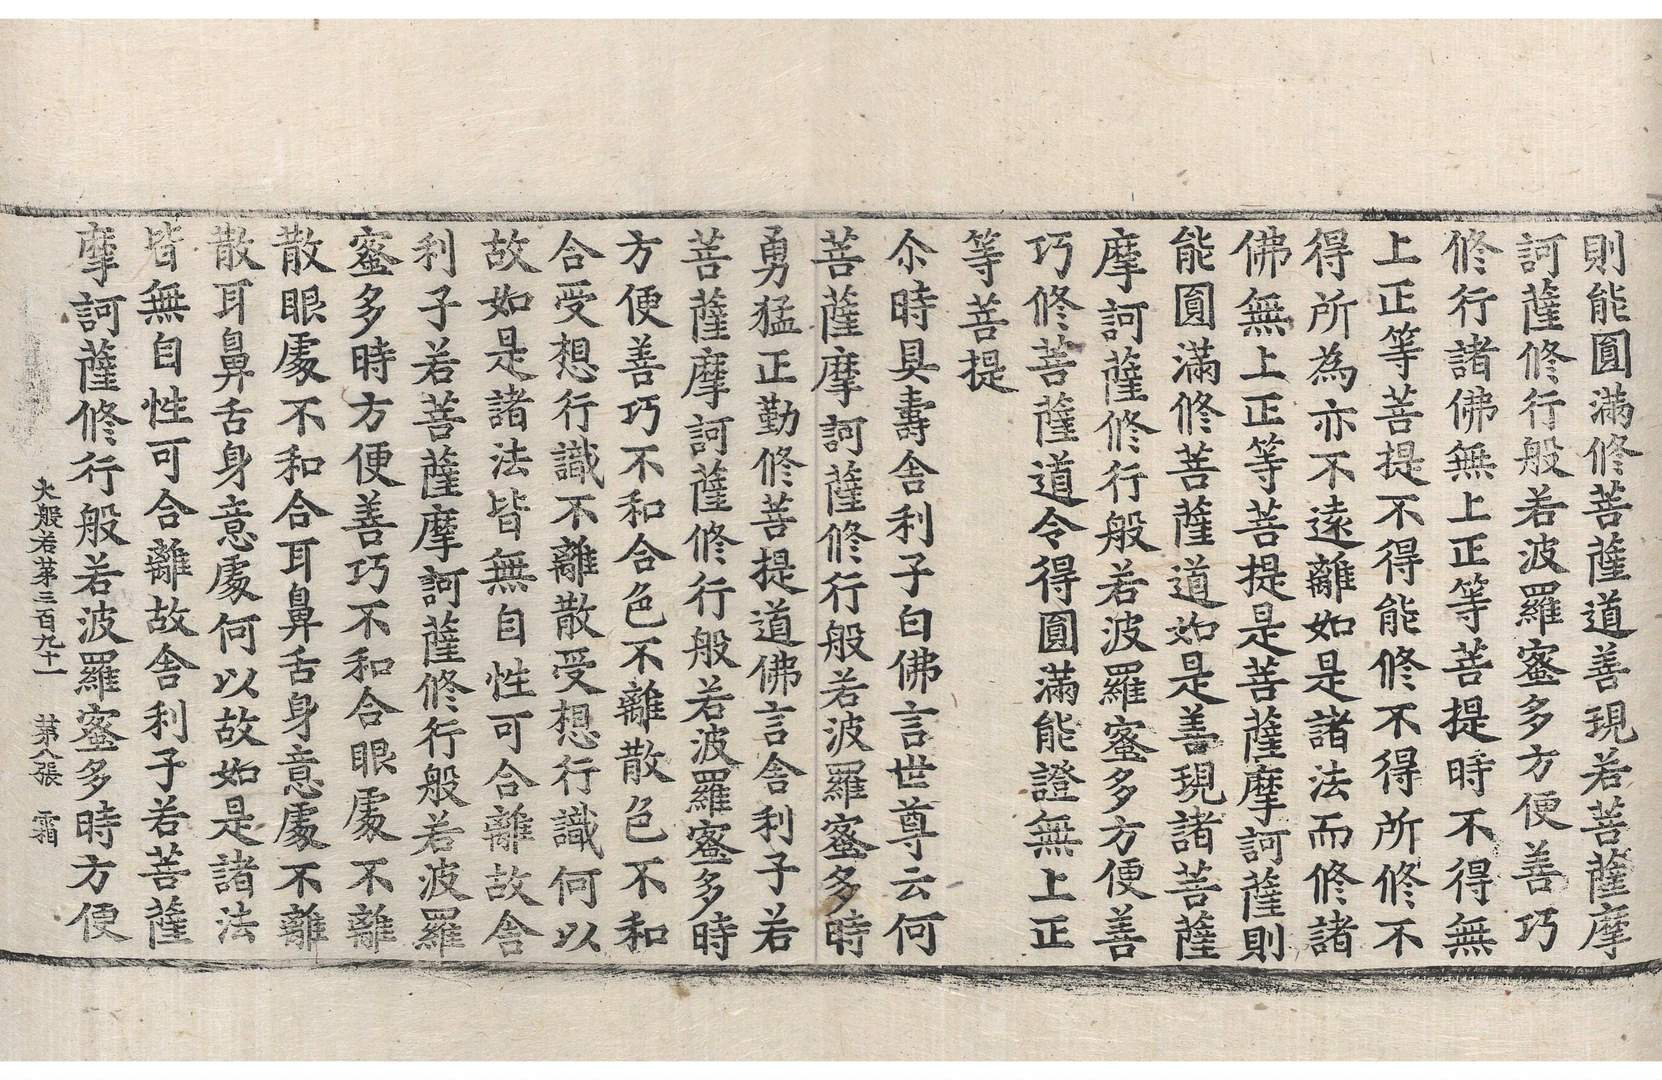 則能圓滿修菩薩道善現若菩薩摩
訶薩修行般若波羅蜜多方便善巧
修行諸佛無上正等菩提時不得無
上正等菩提不得能修不得所修不
得所為亦不遠離如是諸法而修諸
佛無上正等菩提是菩薩摩訶薩則
能圓滿修菩薩道如是善現諸菩薩
摩訶薩修行般若波羅蜜多方便善
巧修菩薩道令得圓滿能證無上正
等菩提
尒時具壽舍利子白佛言世尊云何
菩薩摩訶薩修行般若波羅蜜多時
勇猛正勤修菩提道佛言舍利子若
菩薩摩訶薩修行般若波羅蜜多時
方便善巧不和合色不離散色不和
合受想行識不離散受想行識何以
故如是諸法皆無自性可合離故舍
利子若菩薩摩訶薩修行般若波羅
蜜多時方便善巧不和合眼處不離
散眼處不和合耳鼻舌身意處不離
散耳鼻舌身意處何以故如是諸法
皆無自性可合離故舍利子若菩薩
摩訶薩修行般若波羅蜜多時方便
大般若第三百九十一 第八張 霜